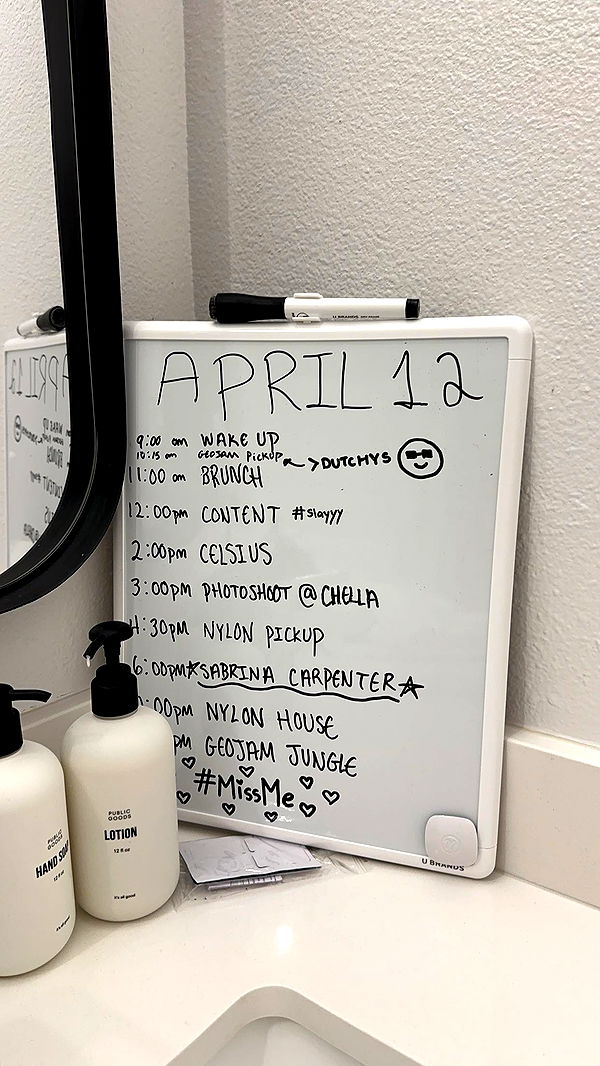 U BRANDS
APRIL 12
9:00 am WAKE UP
10:15 am GEOJAM PICKUP
DUTCHYS
11:00 am BRUNCH
12:00pm CONTENT #slayyy
2:00pm CELSIUS
3:00pm PHOTOSHOOT @ CHELLA
4:30PM NYLON PICKUP
6:00PM SABRINA CARPENTER
:00pm NYLON HOUSE
pm GEOJAM JUNGLE
#MissMe
U BRANDS
PUBLIC
GOODS
LOTION
12 fl oz
it's all good
PUBLIC
GOODS
HAND SOAP
12 fl oz